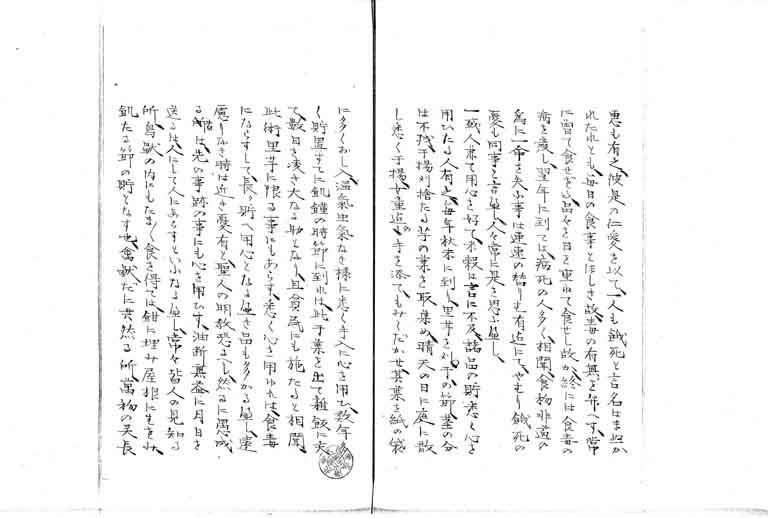 恵も有之彼是の仁愛を以て一人も餓死と言名はま迯か
れたれとも毎日の食事とほしき故毒の有無を弁へす常
に曽て食せざる品々を日を重ねて食せし故か終には食毒の
病を発し翌年に到ては病死の人多く相聞食物非道の
為に一命を失ふ事は連速の替り有迠にてやむり餓死の
憂も同事と言無し人々常に是を思ふ無し
一或人兼て用心を好て米穀は言に不及諸品の貯悉く心を
用ひたる人有之毎年秋末に到し里芋を刈干の節茎の分
は不残干揚刈捨たる芋の葉を取集め晴天の日に庭に散
し悉く干揚女童迠の手を添てもみくだかせ其葉を紙の袋
に多くおし入湿気虫気なき様に悉く手入に心を用ひ数年多
く貯置すてに飢饉の時節に到れは此干葉を出て雑飯に炊
て数日を凌き大なる助となり且貧民にも施たると相聞
此術里芋に限る事にもあらす悉く心を用ゆれは食毒
にならすして長く貯へ用心となる無き品も多かる無し遠
慮りなき時は近き憂有と聖人の明教恐るへし然るに愚成
る者は先の事跡の事にも心を用ひす油断無益に月日を
送るは人にして人にあらすといふなる無し常々皆人の見知る
所鳥獣の内にもたまく食を得ては紺に埋み屋根にもをみ
飢たる節の貯となす也禽獣だに其然る所萬物の天長